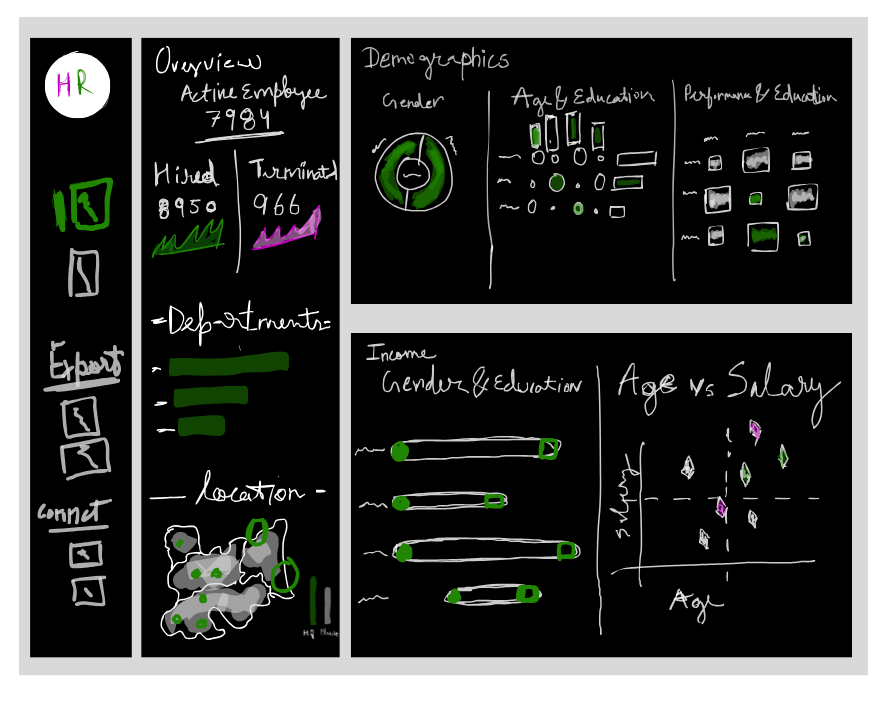 HR
Export
Connect
Overview
Active Employee
7984
Hired
8950
Terminated
966
=Departments=
Location
HQ
Demographics
Gender
Age & Education
Performance & Education
Income
Gender & Education
Age vs Salary
Salary
Age